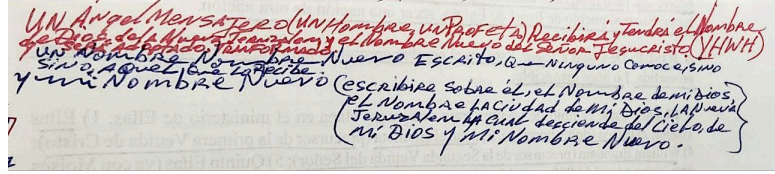 UN Angel MENSAJERO (UN Hombre, UN Profeta) Recibirá y Tendrá el Nombre
de Dios, de la Nueva Jeruzalem y el Nombre Nuevo del Señor Jesucristo (YHWH)
Será Adoptado, Tranformado
UN Nombre Nombre Nuevo Escrito, Que Ninguno Conoce, sino
SiNO, AQUEL, Que La Recibe.
y mi Nombre Nuevo (escribire sobre él, el Nombre de mi Dios
el Nombre LA Ciudad de mi Dios, LA Nueva
Jeruzalem LA CUAL desciende del Cielo, de
mi Dios y Mi Nombre Nuevo.
en el ministerio de Elías: 1) Elías
precursor de la primera Venida de Cristo);
Segunda Venida del Señor); 5) Quinto Elías (ya con Moisés